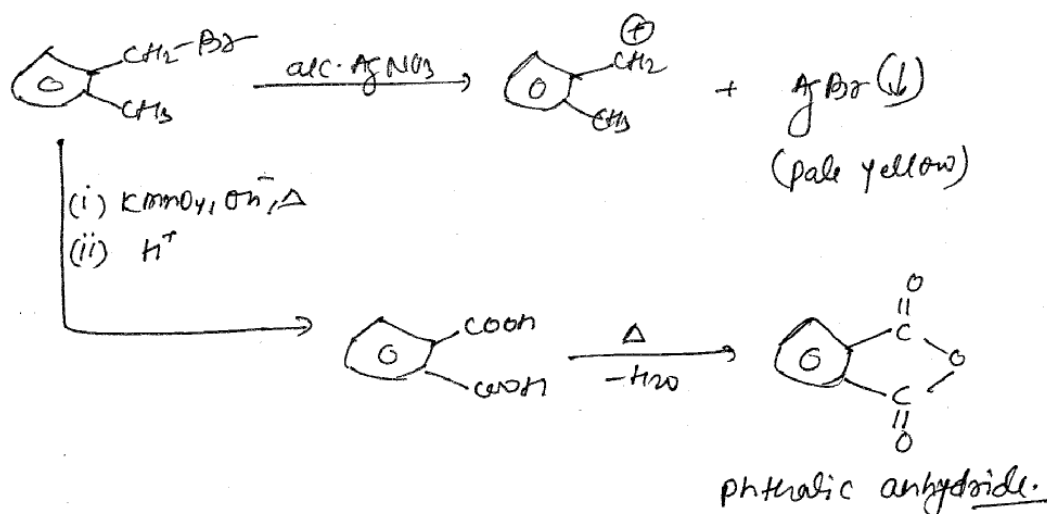 CH2-Br
alc. AgNO3
⊕
CH2
+ AgBr(↓)
CH3
CH3
(pale yellow)
(i) KMnO4, OH⁻, Δ
(ii) H⁺
COOH
COOH
Δ
-H2O
O
C
O
C
O
phthalic anhydride.